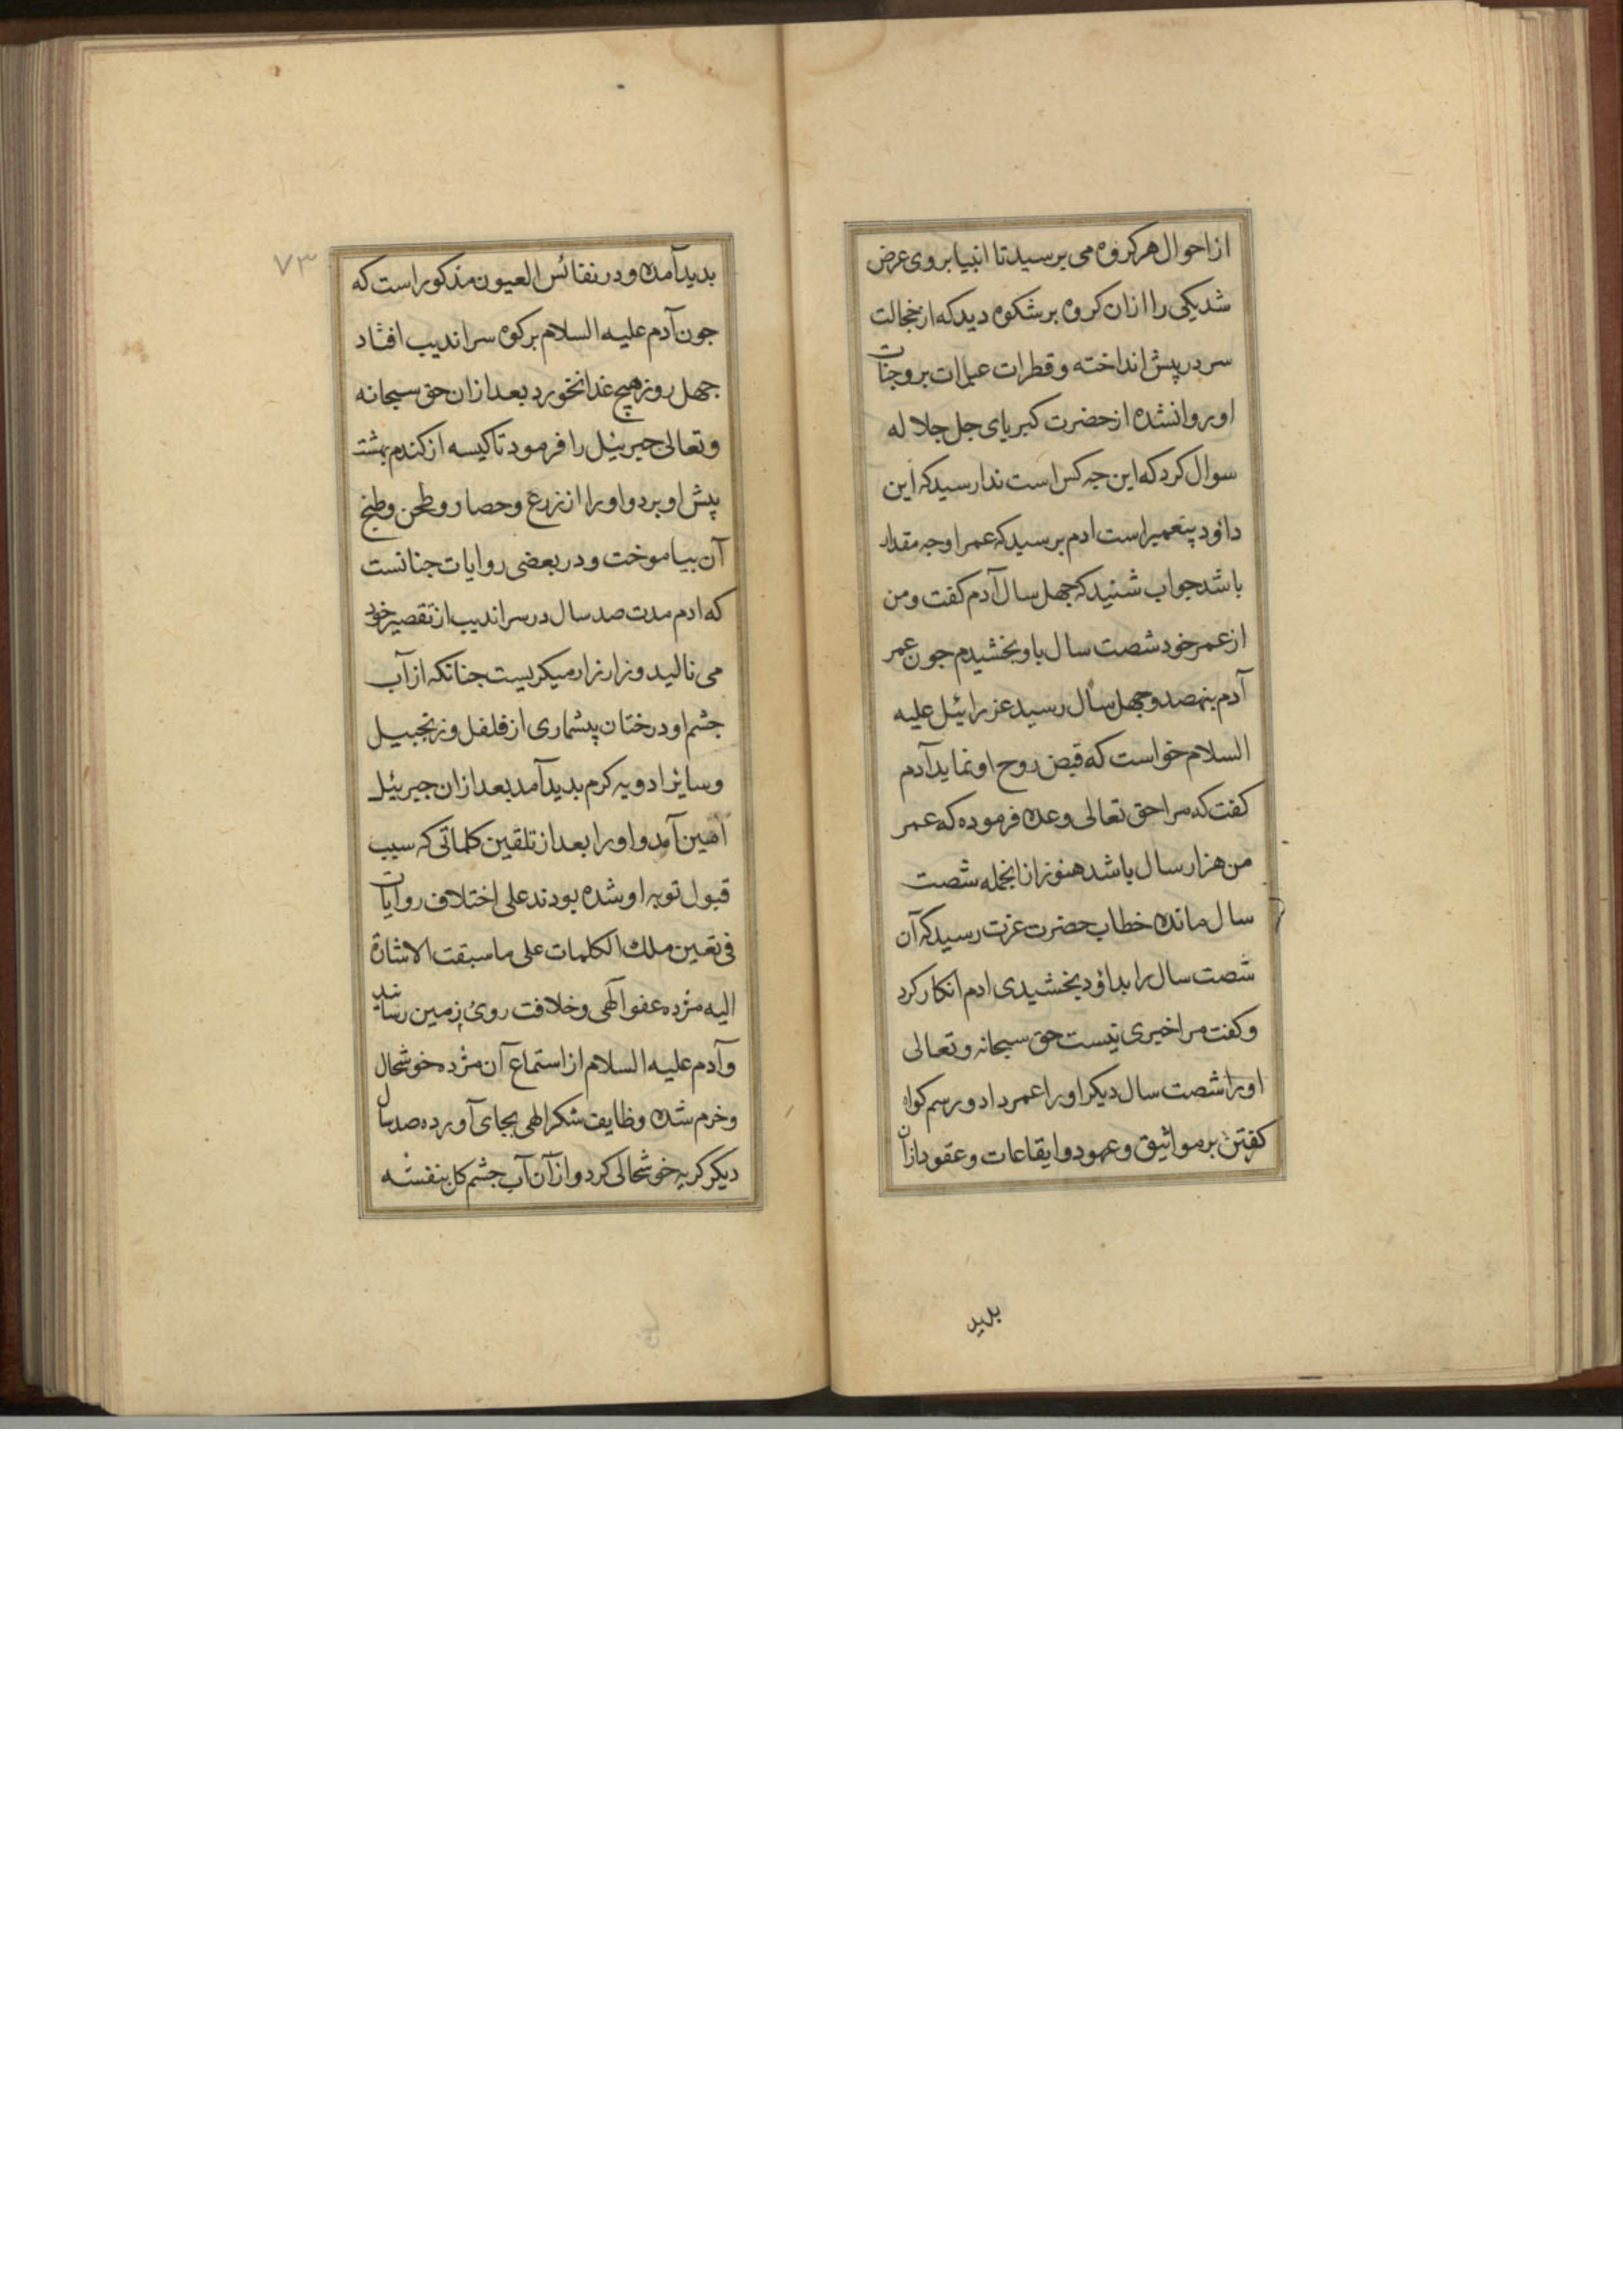 از احوال هر کروه می برسید تا انبیا بروی عرض
شد یکی را ازان کروه برشکوه دید که از خجالت
سر در پیش انداخته و قطرات عبرات بر وجنات
او روان شده از حضرت کبریای جل جلاله
سوال کرد که این جه کس است ندا رسید که این
داود پیغمبر است ادم برسید که عمر او جه مقدار
باشد جواب شنید که جهل سال آدم کفت و من
از عمر خود شصت سال باو بخشیدم جون عمر
آدم بنهصد و جهل سال رسید عزرائیل علیه
السلام خواست که قبض روح او نماید آدم
کفت که مرا حق تعالی وعده فرموده که عمر
من هزار سال باشد هنوز ازانجمله شصت
سال مانده خطاب حضرت عزت رسید که آن
شصت سال را بداود بخشیدی ادم انکار کرد
و کفت مرا خبری نیست حق سبحانه و تعالی
اورا شصت سال دیکر اورا عمر داد و رسم کواه
کفتن بر مواثیق و عهود و ایقاعات و عقود ازان
بدید
۷۳
بدید آمده و در نفائس العیون مذکور است که
جون آدم علیه السلام بر کوه سراندیب افتاد
جهل روز هیچ غذا نخورد بعد ازان حق سبحانه
و تعالی جبرئیل را فرمود تا کیسه از کندم بهشت
پیش او برد و اورا از زرع و حصاد و طحن و طبخ
آن بیاموخت و در بعضی روایات جنانست
که ادم مدت صد سال در سراندیب از تقصیر خود
می نالید و زار زار میکریست جنانکه از آب
جشم او درختان بیشماری از فلفل و زنجبیل
و سائر ادویه کرم بدید آمد بعد ازان جبرئیل
امین آمد و اورا بعد از تلقین کلماتی که سبب
قبول توبه او شده بودند علی اختلاف روایات
فی تعین ملک الکلمات علی ما سبقت الاشارة
الیه مژده عفو الهی و خلافت روی زمین رسانید
و آدم علیه السلام از استماع آن مژده خوشحال
و خرم شده وظایف شکر الهی بجای آورده صد سال
دیکر کریه خوشحالی کرد و از آن آب جشم کل بنفشه